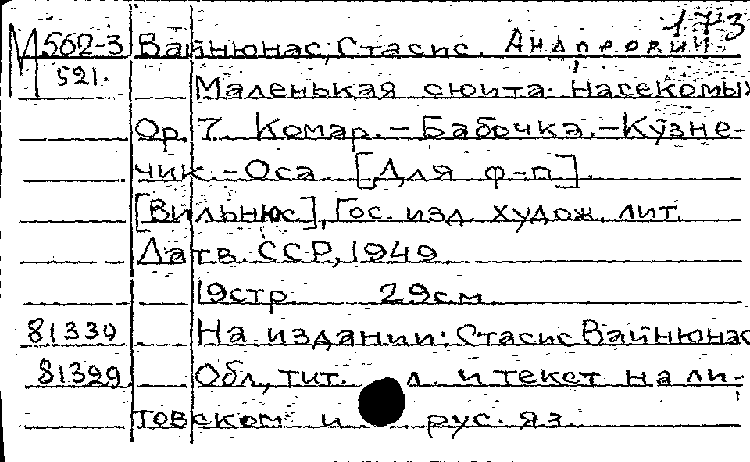 173
М 562-3 Вайнюнас, Стасис Андреевич
521. Маленькая сюита. Насекомых
Op. 7. Комар. – Бабочка. – Кузне-
чик. – Оса [Для ф-п.]
[Вильнюс], Гос. изд. худож. лит.
Датв. ССР, 1949
19 стр. 29 см.
81330 На издании: Стасис Вайнюнас
81329 Обл., тит. л. и текст на ли-
товском и рус. яз.